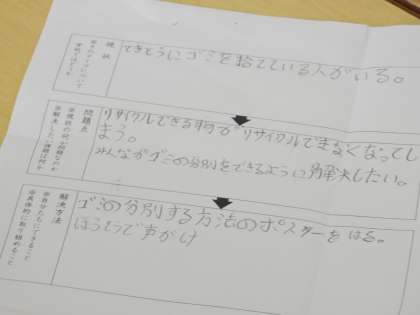 現状
てきとうにゴミを捨てている人がいる。
問題点
リサイクルできる物がリサイクルできなくなってし
まう。
みんながゴミの分別をできるように解決したい。
解決方法
ゴミの分別する方法のポスターをはる。
ほうそうで声がけ